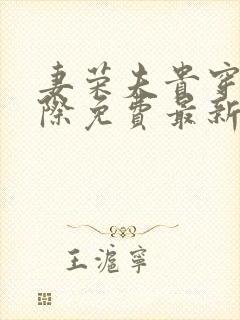 妻荣夫贵穿
际免费最新
王滬寧